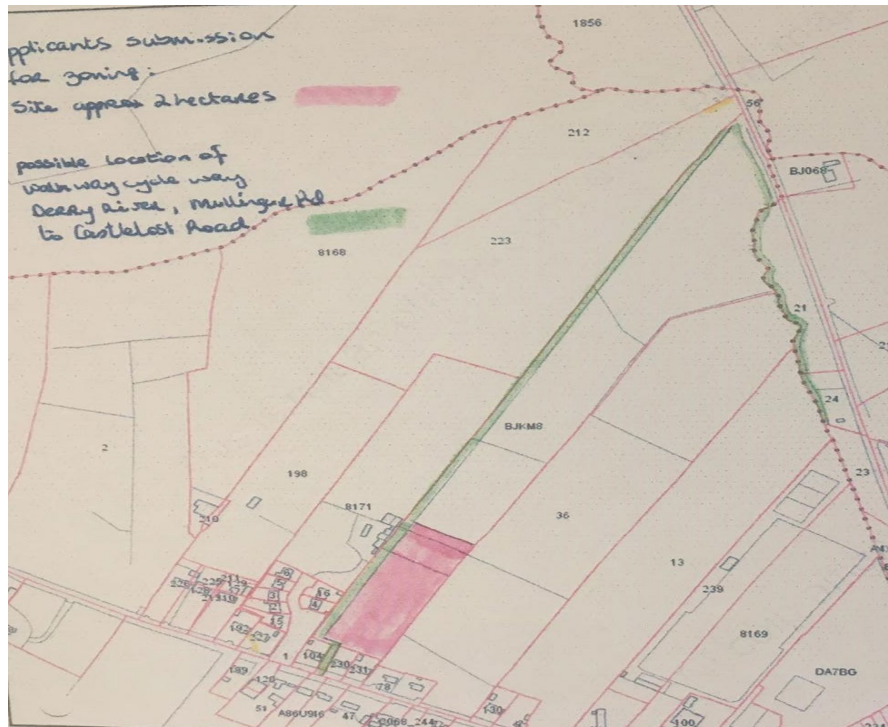 pplicants submission
for zoning:
Site approx 2 hectares
possible location of
walkway cycle way
Derry River, Mullingar Rd
to Castlelost Road
1856
56
212
BJ068
223
8168
21
24
2
BJKM8
23
198
8171
36
210
13
239
8169
DA7BG
16
4
3
2
15
192
1
104
230
231
78
189
120
51
A86U9I6
47
C068_244
130
100